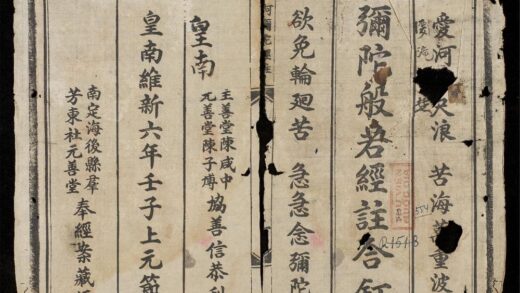 愛河 尺浪 苦海萬重波
彌陀般若經註合
欲免輪廻苦 急急念彌陀
皇南
主善堂陳咸中
元善堂陳子
協善信恭刊
皇南維新六年壬子上元節
南定海後縣羣
芳東社元善堂
奉經案藏
554